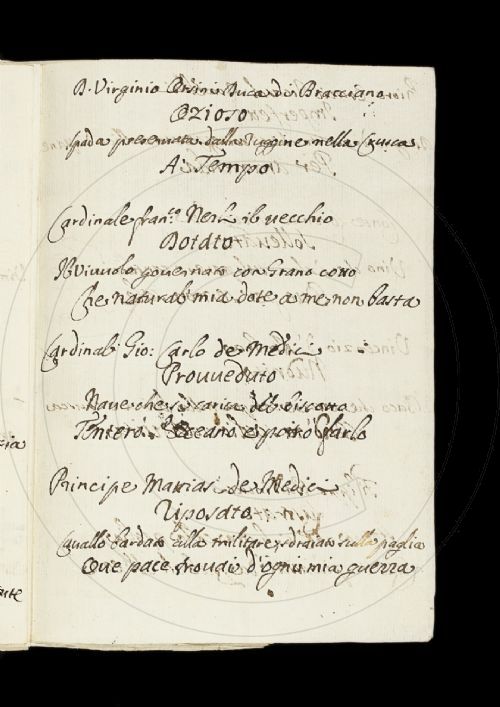 D. Virginio Orsini Duca di Bracciano
Ozioso
Spada preservata dalla Ruggine nella Crusca
A' Tempo
Cardinale Fran.co Nerli il vecchio
Dotato
Il Vivuolo governato con Grano cotto
Che natural mia dote a me non basta
Cardinal Gio: Carlo de Medici
Provveduto
Nave che si carica di biscotto
L'Oceano
Principe Mattias de Medici
Riposato
Cavallo bardato alla militare sdraiato sulla paglia
Que pace trovai d'ogni mia guerra